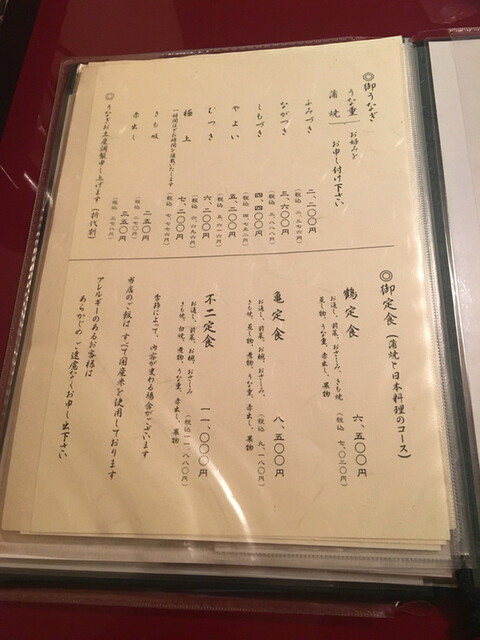 ◎御うなぎ
うな重
蒲焼
お好みを
お申し付け下さい
ふみづき 二、二〇〇円
（税込 二、三七六円）
ながつき 三、六〇〇円
（税込 三、八八八円）
しもづき 四、四〇〇円
（税込 四、七五二円）
やよい 五、二〇〇円
（税込 五、六一六円）
むつき 六、二〇〇円
（税込 六、六九六円）
極上 七、二〇〇円
（税込 七、七七六円）
一時間ほどお時間を頂戴いたします
きも吸 二五〇円
（税込 二七〇円）
赤出し 三五〇円
（税込 三七八円）
◎うなぎお土産調製申し上げます（折代別）
◎御定食（蒲焼と日本料理のコース）
鶴定食 六、五〇〇円
（税込 七、〇二〇円）
お通し、前菜、おさしみ、きも焼
蒸し物、うな重、赤出し、果物
亀定食 八、五〇〇円
（税込 九、一八〇円）
お通し、前菜、お椀、おさしみ、
きも焼、蒸し物、煮物、うな重、赤出し、果物
不二定食 一一、〇〇〇円
（税込 一一、八八〇円）
お通し、前菜、お椀、おさしみ、
きも焼、白焼、煮物、うな重、赤出し、果物
季節によって、内容が変わる場合がございます
当店のご飯は、すべて国産米を使用しております
アレルギーのあるお客様は
あらかじめ ご遠慮なくお申し出下さい